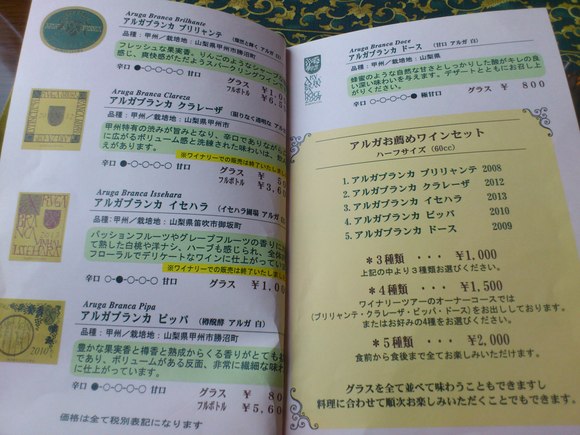 Aruga Branca Brilhante
アルガブランカ ブリリャンテ
品種:甲州/栽培地:山梨県甲州市勝沼町
フレッシュな果実香、りんごのような
感じ、爽快感がただようスパークリングワイ
辛口 甘口
グラス ¥1,0
フルボトル ¥6,5
Aruga Branca Clareza
アルガブランカ クラレーザ
品種:甲州/栽培地:山梨県甲州市
甲州特有の渋みが旨みとなり、辛口でありながら
に広がるボリューム感と洗練された味わいは、飲
えがあります。
※ワイナリーでの販売は終了いたしま
辛口 甘口
グラス ¥
フルボトル ¥3,6
Aruga Branca Issehara
アルガブランカ イセハラ (イセハラ圃場 アルガ 白
品種:甲州/栽培地:山梨県笛吹市御坂町
パッションフルーツやグレープフルーツの香りに
て熟した白桃や洋ナシ、ハーブも感じられ、全体
フローラルでデリケートなワインに仕上がってい
※ワイナリーでの販売は終了いたし
辛口 甘口
グラス ¥1,0
Aruga Branca Pipa
アルガブランカ ピッパ (樽醗酵 アルガ 白)
品種:甲州/栽培地:山梨県甲州市勝沼町
豊かな果実香と樽香と熟成からくる香りがとても
であり、ボリュームがある反面、非常に繊細な味
に仕上がっています。
辛口 甘口
グラス ¥ 80
フルボトル ¥5,60
価格は全て税別表記になります
2010
Aruga Branca Doce
アルガブランカ ドース (甘口 アルガ 白)
品種:甲州/栽培地:山梨県
蜂蜜のような自然な甘さとしっかりした酸がキレの良
い深い味わいを与えます。デザートとともにお召し上
がりください。
辛口 極甘口
グラス ¥ 800
アルガお薦めワインセット
ハーフサイズ (60cc)
1. アルガブランカ ブリリャンテ 2008
2. アルガブランカ クラレーザ 2012
3. アルガブランカ イセハラ 2013
4. アルガブランカ ピッパ 2010
5. アルガブランカ ドース 2009
*3種類 ・・・ ¥1,000
上記の中より3種類お選びください。
*4種類 ・・・ ¥1,500
ワイナリーツアーのオーナーコースでは
(ブリリャンテ・クラレーザ・ピッパ・ドース)をお出ししております。
またはお好みの4種をお選びください。
*5種類 ・・・ ¥2,000
食前から食後まで全てお楽しみいただけます。
グラスを全て並べて味わうこともできますし
料理に合わせて順次お楽しみいただくこともできます。